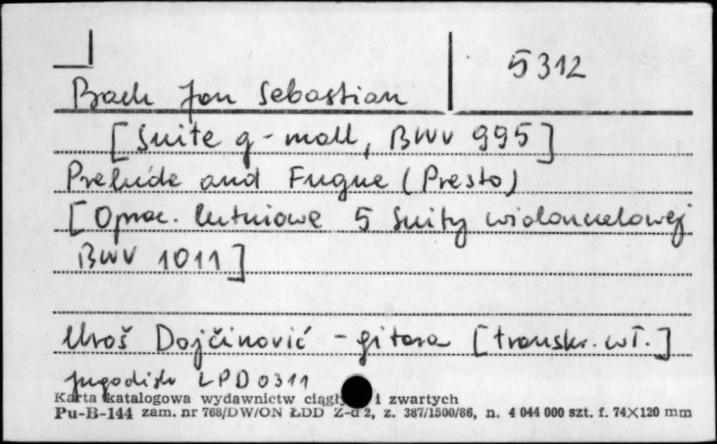 5312
Bach Jan Sebastian
[Suite g-moll, BWV 995]
Prelude and Fugue (Presto)
[Oprac. lutniowe 5 Suity wiolonczelowej
BWV 1011]
Uroš Dojčinović - gitara [transkr. wł.]
jugodisk LPD 0311
Karta katalogowa wydawnictw ciągł i zwartych
Pu-B-144 zam. nr 768/DW/ON ŁDD Z-d 2, z. 387/1500/86, n. 4 044 000 szt. f. 74×120 mm